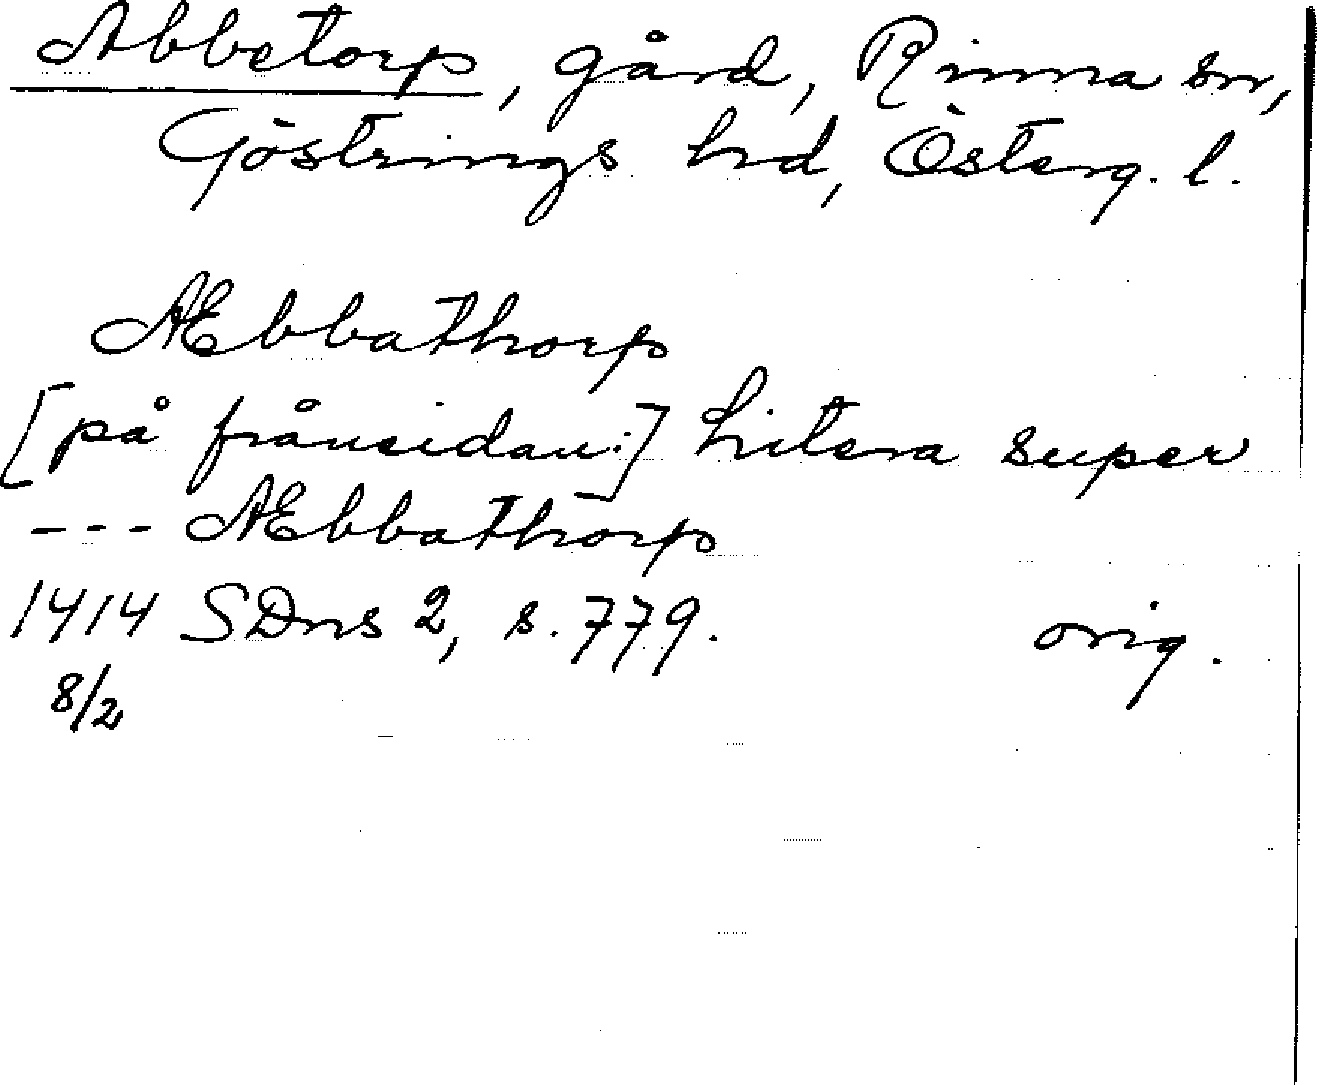 Abbetorp, gård, Rinna sn,
Göstrings hd, Österg. l.
Æbbathorp
[på frånsidan:] Litera super
--- Æbbathorp
1414 SDns 2, s. 779. orig.
8/2